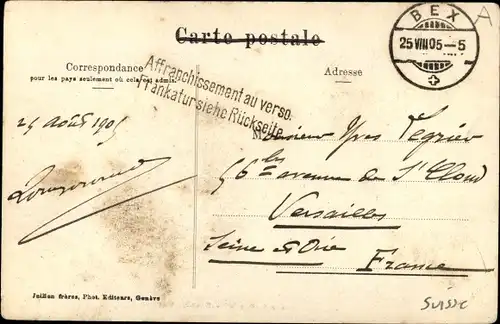 Carte postale
BEX
25 VIII 05-5
A
Correspondance
pour les pays seulement où cela est admis.
Adresse
Affranchissement au verso.
Frankatur siehe Rückseite.
25 Août 1905
Monsieur Yves
56 bis avenue de St Cloud
Versailles
Seine et Oise
France
Jullien frères, Phot. Editeurs, Genève
SUISSE